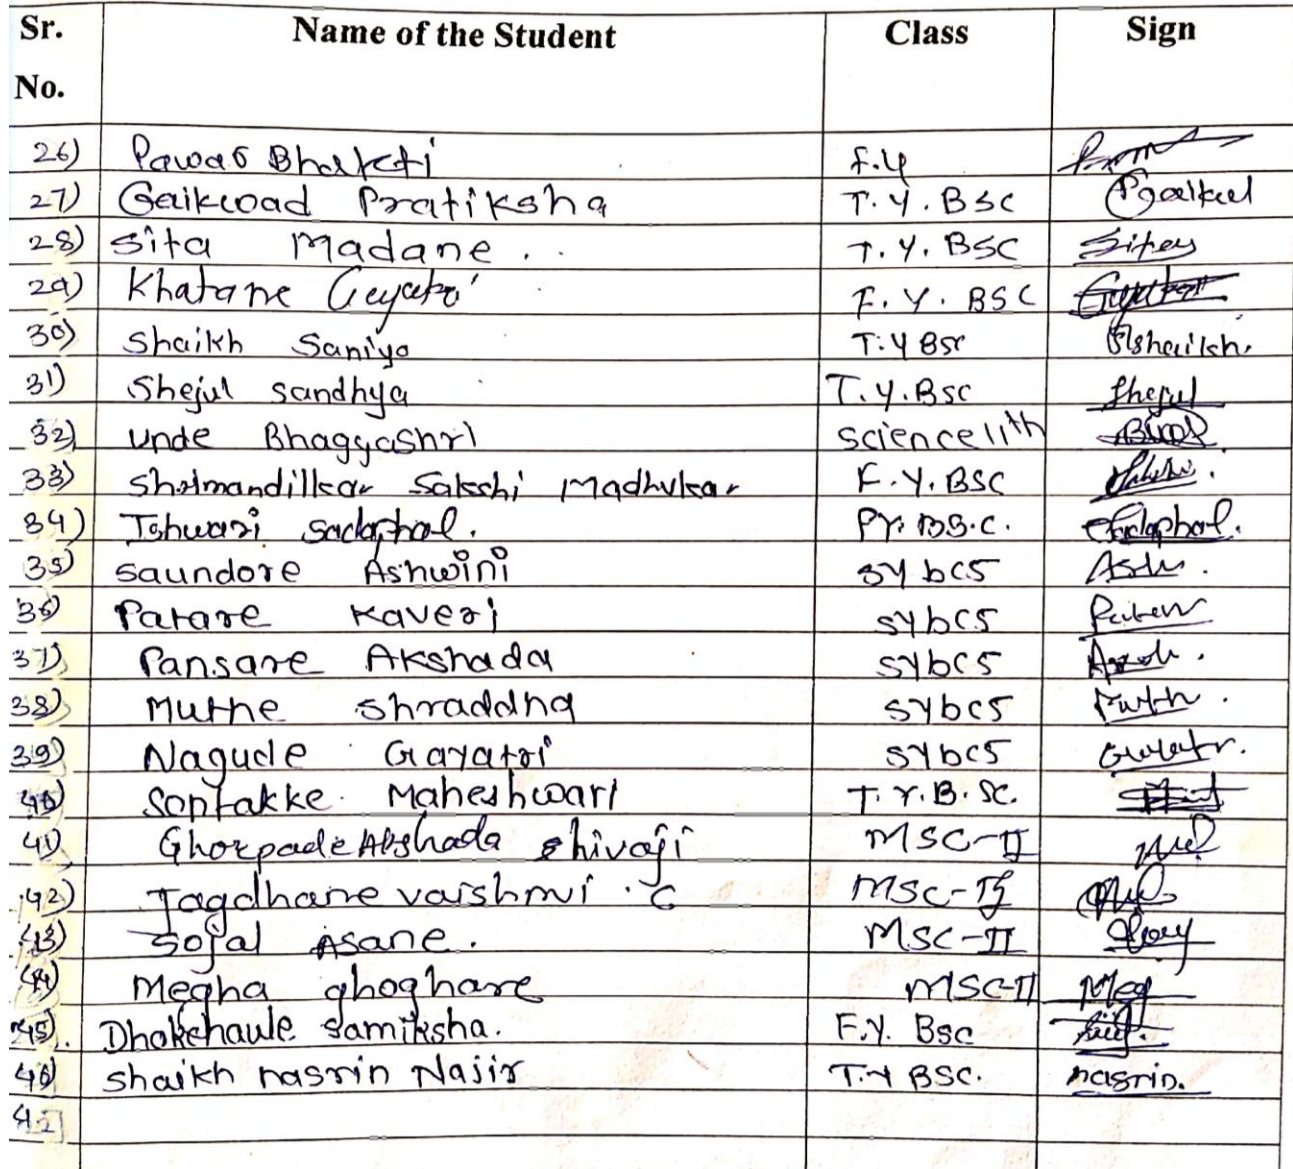 Sr. No. Name of the Student Class Sign
26) Pawar Bhakti F.Y
27) Gaikwad Pratiksha T.Y.BSC
28) Sita Madane.. T.Y.BSC
29) Khatane Gayatri F.Y.BSC
30) Shaikh Saniya T.Y Bsc Sshaikh.
31) Shejul Sandhya T.Y.Bsc Shejul
32) Unde Bhagyashri science 11th
33) Sholmandilkar Sakshi Madhukar F.Y.BSC
34) Ishwari Sadaphal. BS.C. Sadaphal.
35) Saundore Ashwini SY bcs
36) Patare Kaveri SYbcs
37) Pansare Akshada SYbcs
38) Muthe Shraddha SYbcs
39) Nagude Gayatri SYbcs
40) Soptakke Maheshwari T.Y.B.SC.
41) Ghorpade Akshada Shivaji MSC-II
42) Jagdhane vaishnvi .C MSC-II
43) Sojal Asane. MSC-II
44) Megha ghoghare MSC-II Meg
45). Dhokchaule Samiksha. F.Y. Bsc
46) Shaikh nasrin Najir T.Y BSC. nasrin.
42]